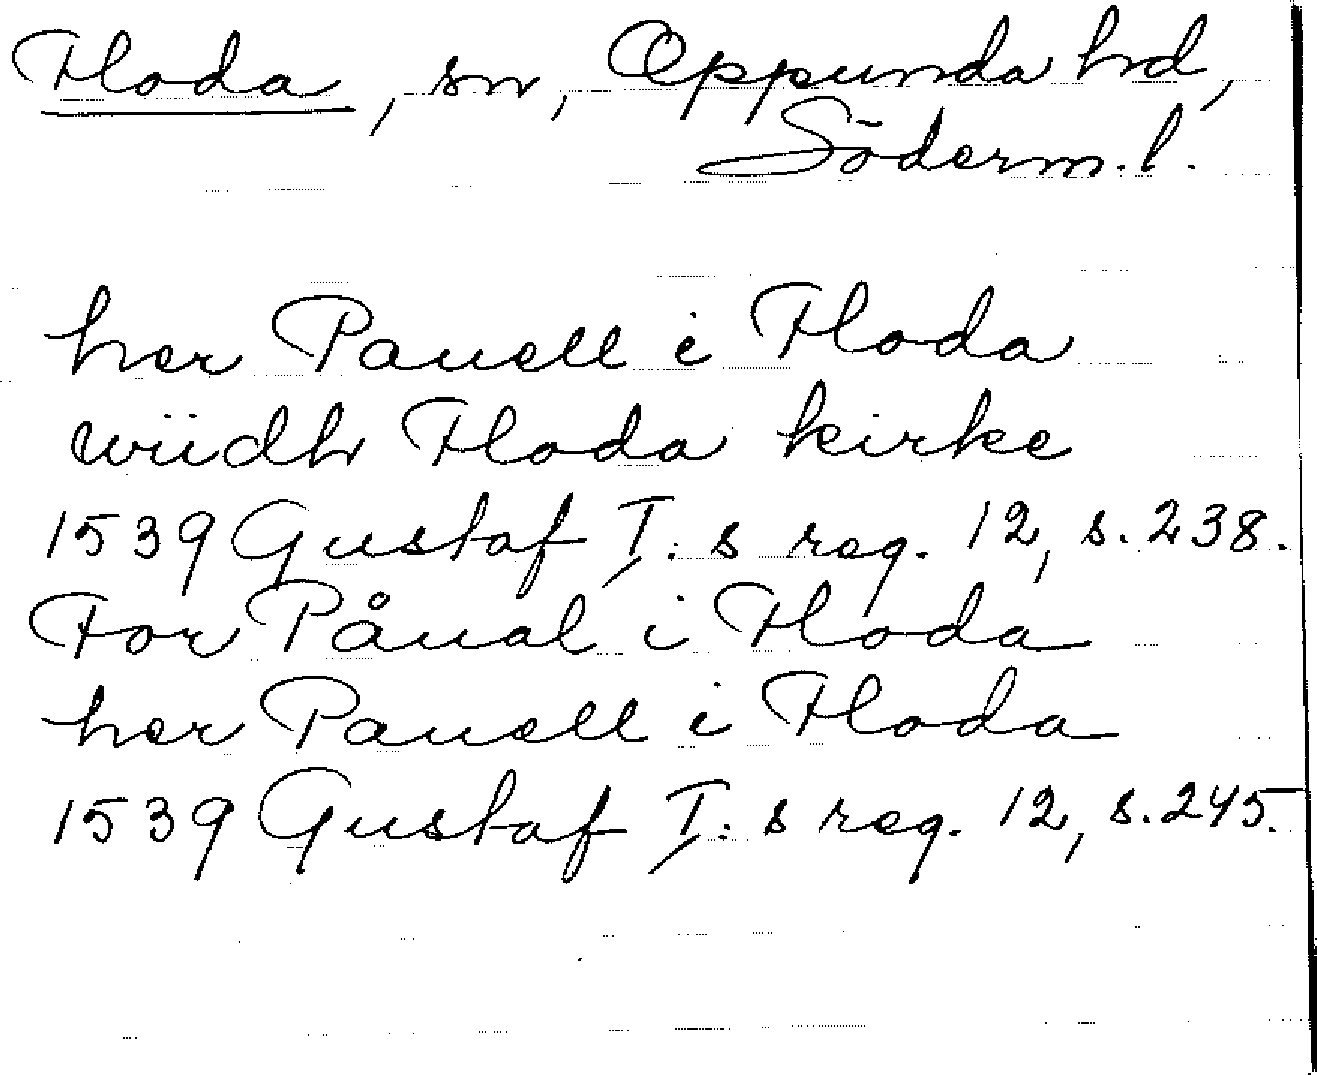 Floda, sn, Oppunda hd,
Söderm.l.
her Pauell i Floda
wiidh Floda kirke
1539 Gustaf I:s reg. 12, s. 238.
For Påual i Floda
her Pauell i Floda
1539 Gustaf I:s reg. 12, s. 245.